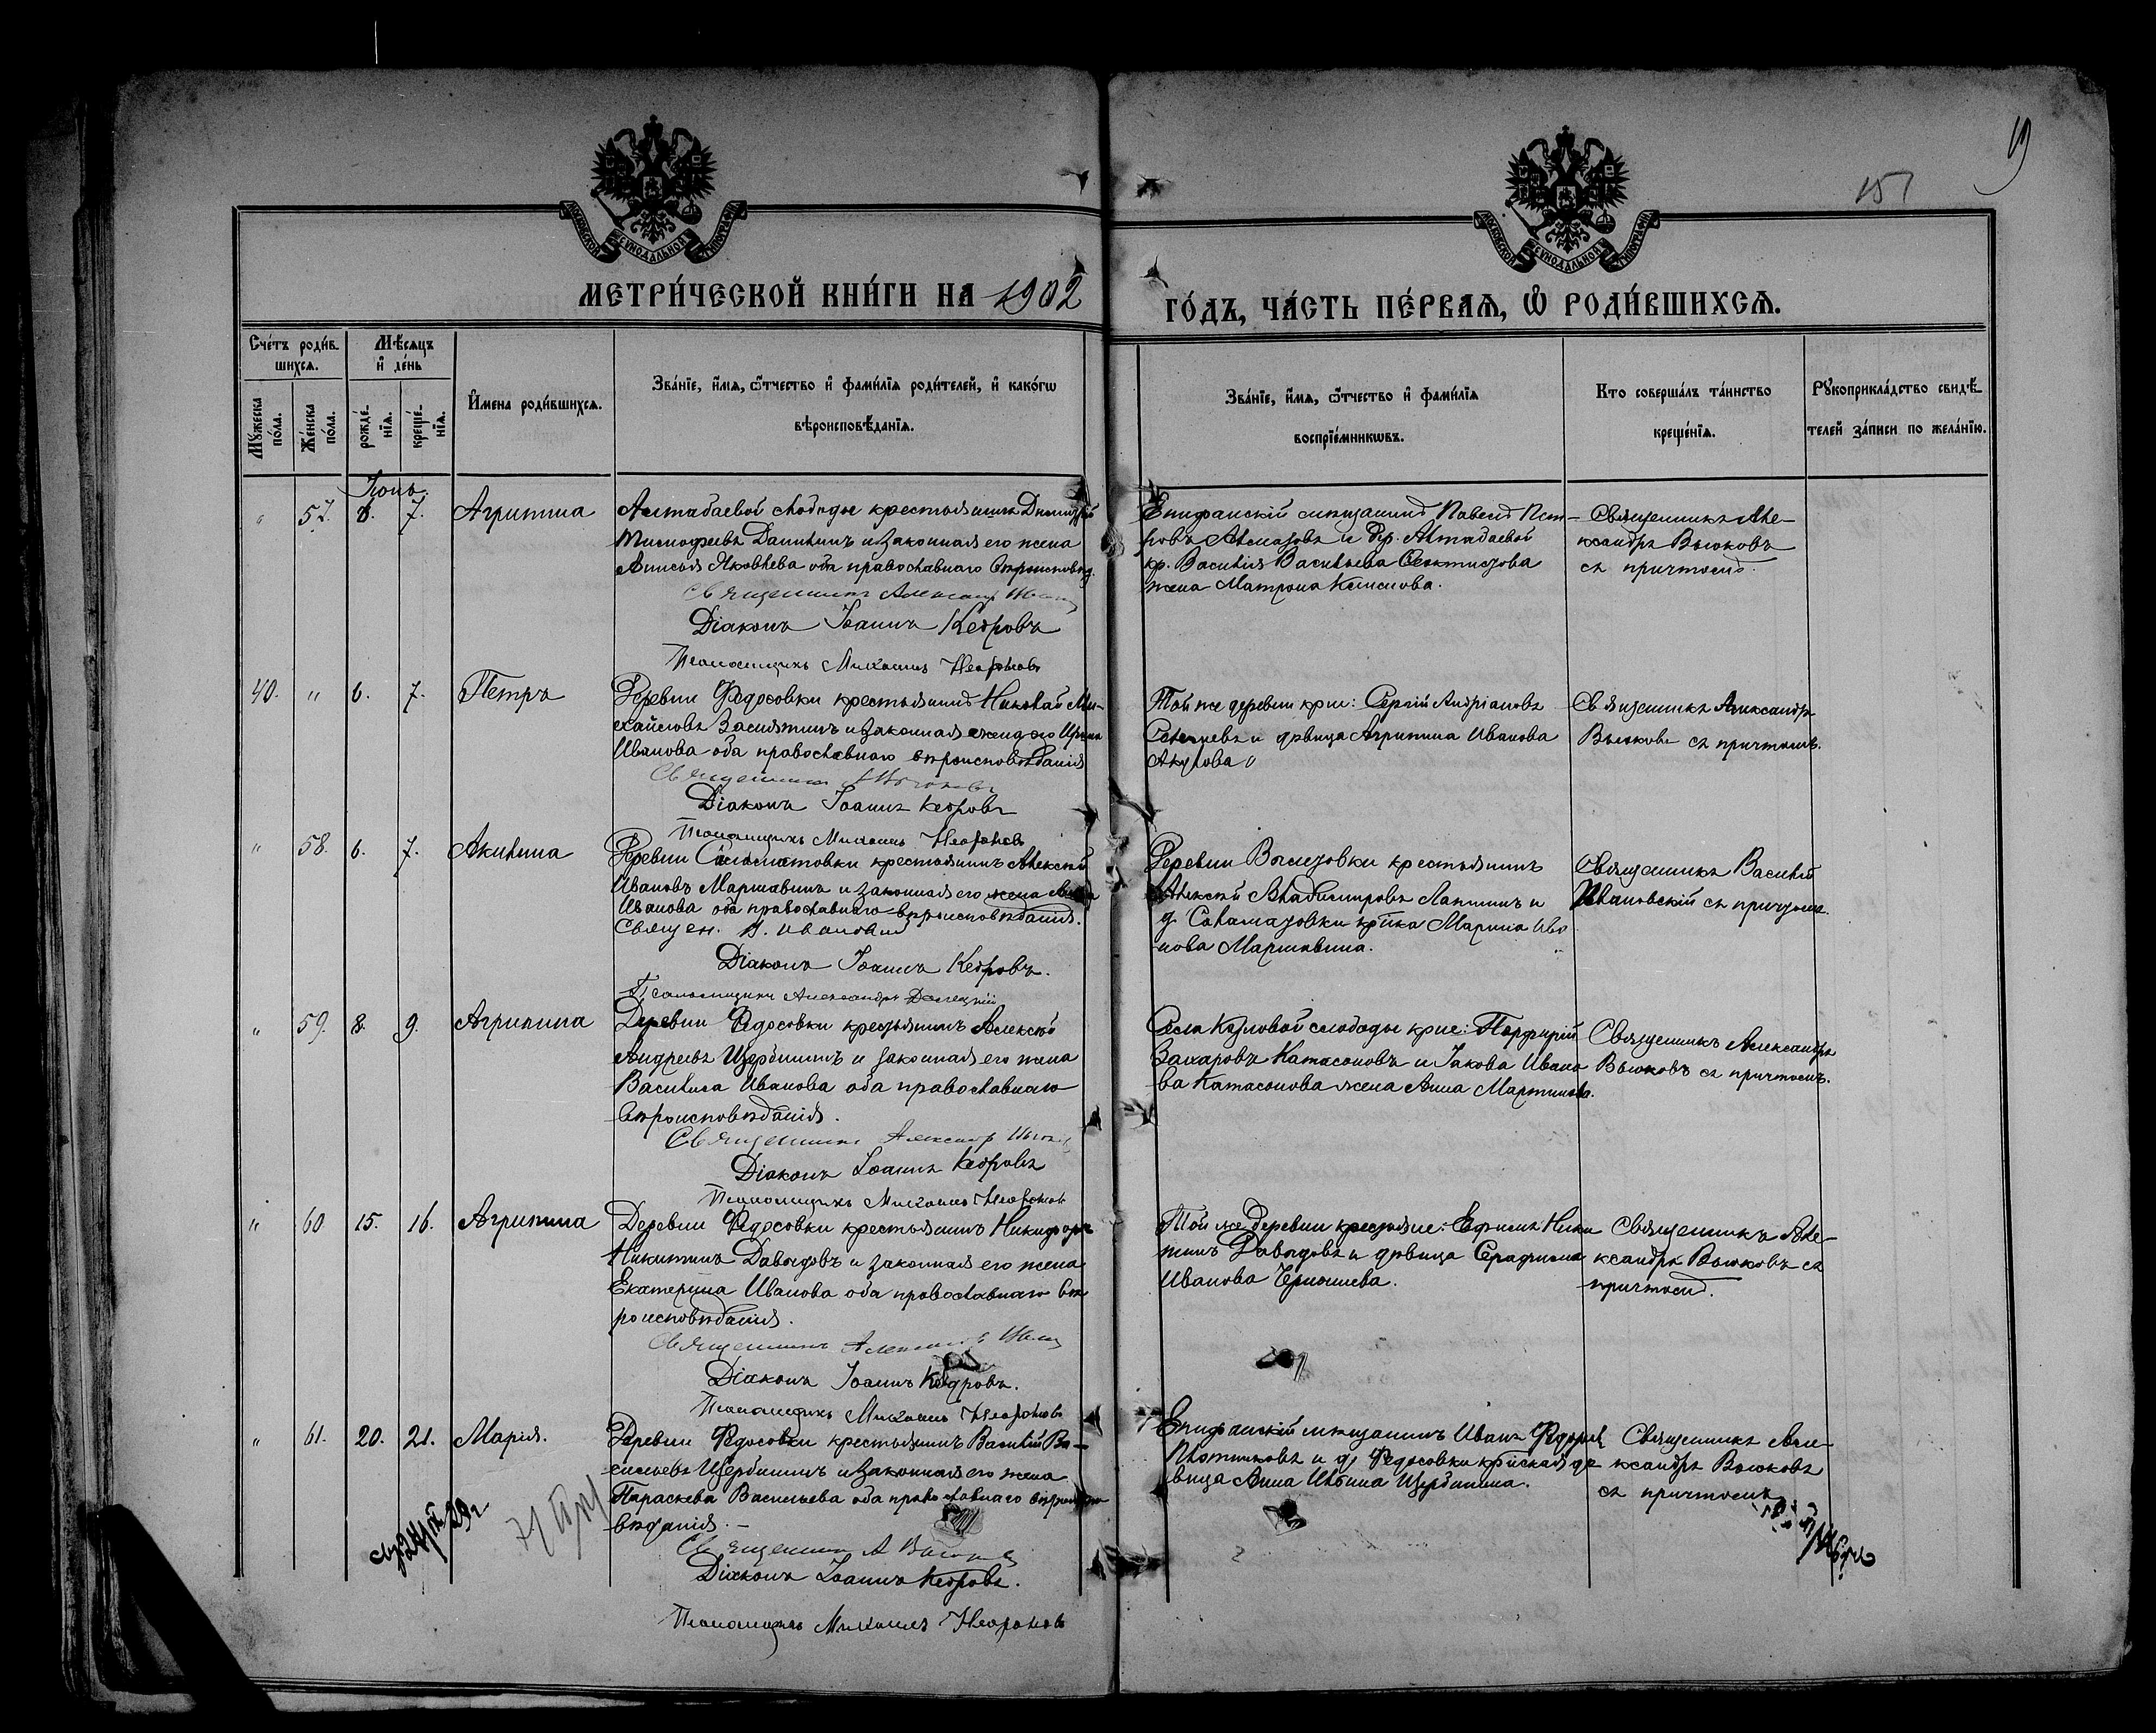 151
19
МОСКОВСКОЙ СѴНОДАЛЬНОЙ ТИПОГРАФІИ
МОСКОВСКОЙ СѴНОДАЛЬНОЙ ТИПОГРАФІИ
МЕТРИ́ЧЕСКОЙ КНИ́ГИ НА 1902
ГО́ДЪ, ЧА́СТЬ ПЕ́РВАѦ, Ѡ҆ РОДИ́ВШИХСѦ.
Сче́тъ роди́в-
шихсѧ.
Мѣ́сѧцъ
и҆ де́нь
Мꙋ́жеска по́ла.
Же́нска по́ла.
рожде́-
нїѧ.
креще́-
нїѧ.
И҆мена роди́вшихсѧ.
Зва́нїе, и҆́мѧ, ѻ҆́тчество и҆ фами́лїѧ роди́телей, и҆ како́гѡ
вѣроисповѣ́данїѧ.
Зва́нїе, и҆́мѧ, ѻ҆́тчество и҆ фами́лїѧ
воспрїе́мникѡвъ.
Кто соверша́лъ та́инство
креще́нїѧ.
Рꙋкоприкла́дство свидѣ́-
телей за́писи по жела́нїю.
Іюнь.
" 57. 6. 7. Агрипина
Алтабаевой слободы крестьянинъ Димитрій
Тимофеевъ Данилинъ и законная его жена
Анисья Яковлева оба православнаго вѣроисповѣд.
Священникъ Александр
Діаконъ Іоаннъ Кедровъ
Псаломщикъ Михаилъ
Епифанскій мѣщанинъ Павелъ Пет-
ровъ Алмазовъ и Алтабаевой
кр. Василія Васильева
жена Матрона
Священникъ Але-
ксандръ Вьюковъ
съ причтомъ.
40. " 6. 7. Петръ
Деревни Федосовки крестьянинъ Николай Ми-
хайловъ и законная жена его Ирина
Иванова оба православнаго вѣроисповѣданія
Священникъ А Вьюковъ
Діаконъ Іоаннъ Кедровъ
Псаломщикъ Михаилъ
Той же деревни крне: Сергій Андріановъ
и дѣвица Агрипина Иванова
Акулова "
Священникъ Александръ
Вьюковъ съ причтомъ.
" 58. 6. 7. Акилина
Деревни крестьянинъ Алексѣй
Ивановъ Маршавинъ и законная его жена
Иванова оба православнаго вѣроисповѣданія.
Священ. В. Ивановскій
Діаконъ Іоаннъ Кедровъ.
Псаломщикъ Александръ
Деревни крестьянинъ
Алексѣй Владимировъ Лапшинъ и
д. кр-ка Марина Ива-
нова Маршавина.
Священникъ Василій
Ивановскій съ причтомъ.
" 59. 8. 9. Агрипина
Деревни Федосовки крестьянинъ Алексѣй
Андреевъ Щербининъ и законная его жена
Василиса Иванова оба православнаго
вѣроисповѣданія.
Священникъ Александр
Діаконъ Іоаннъ Кедровъ
Псаломщикъ Михаилъ
Села Казловой слободы крне: Порфирій
Захаровъ Катасоновъ и Іакова Ивано
ва Катасонова жена Анна Мартинова.
Священникъ Александръ
Вьюковъ съ причтомъ.
" 60. 15. 16. Агрипина
Деревни Федосовки крестьянинъ Никифоръ
Никитинъ Давыдовъ и законная его жена
Екатерина Иванова оба православнаго вѣ-
роисповѣданія.
Священникъ
Діаконъ Іоаннъ Кедровъ.
Псаломщикъ Михаилъ
Той же деревни крестьяне: Ефимъ Ники
тинъ Давыдовъ и дѣвица Серафима
Иванова Чернышева.
Священникъ Але-
ксандръ Вьюковъ съ
причтомъ.
" 61. 20. 21. Марія.
Деревни Федосовки крестьянинъ Василій Ва-
сильевъ Щербининъ и законная его жена
Параскева Васильева оба православнаго вѣроиспо-
вѣданія. -
Священникъ А Вьюковъ
Діаконъ Іоаннъ Кедровъ.
Псаломщикъ Михаилъ
Епифанскій мѣщанинъ Иванъ
Плотниковъ и д. Федосовки кр-ская дѣ
вица Анна Ильина Щербинина.
Священникъ Але-
ксандръ Вьюковъ
съ причтомъ